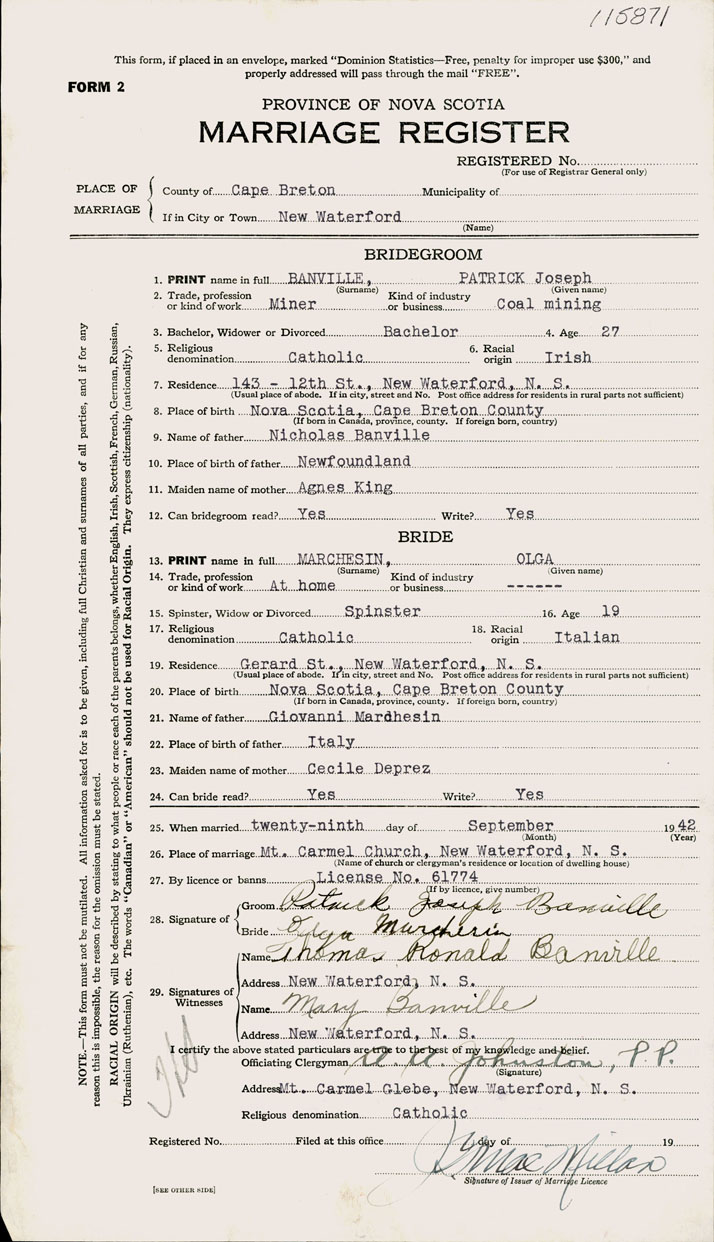 115871
This form, if placed in an envelope, marked "Dominion Statistics—Free, penalty for improper use $300," and
properly addressed will pass through the mail "FREE".
FORM 2
PROVINCE OF NOVA SCOTIA
MARRIAGE REGISTER
REGISTERED No.
(For use of Registrar General only)
PLACE OF MARRIAGE
County of Cape Breton Municipality of
If in City or Town New Waterford
(Name)
BRIDEGROOM
1. PRINT name in full BANVILLE, PATRICK Joseph
(Surname) (Given name)
2. Trade, profession or kind of work Miner Kind of industry or business Coal mining
3. Bachelor, Widower or Divorced Bachelor 4. Age 27
5. Religious denomination Catholic 6. Racial origin Irish
7. Residence 143 - 12th St., New Waterford, N. S.
(Usual place of abode. If in city, street and No. Post office address for residents in rural parts not sufficient)
8. Place of birth Nova Scotia, Cape Breton County
(If born in Canada, province, county. If foreign born, country)
9. Name of father Nicholas Banville
10. Place of birth of father Newfoundland
11. Maiden name of mother Agnes King
12. Can bridegroom read? Yes Write? Yes
BRIDE
13. PRINT name in full MARCHESIN, OLGA
(Surname) (Given name)
14. Trade, profession or kind of work At home Kind of industry or business ------
15. Spinster, Widow or Divorced Spinster 16. Age 19
17. Religious denomination Catholic 18. Racial origin Italian
19. Residence Gerard St., New Waterford, N. S.
(Usual place of abode. If in city, street and No. Post office address for residents in rural parts not sufficient)
20. Place of birth Nova Scotia, Cape Breton County
(If born in Canada, province, county. If foreign born, country)
21. Name of father Giovanni Mardhesin
22. Place of birth of father Italy
23. Maiden name of mother Cecile Deprez
24. Can bride read? Yes Write? Yes
25. When married twenty-ninth day of September 1942
(Month) (Year)
26. Place of marriage Mt. Carmel Church, New Waterford, N. S.
(Name of church or clergyman's residence or location of dwelling house)
27. By licence or banns License No. 61774
(If by licence, give number)
28. Signature of
Groom Patrick Joseph Banville
Bride Olga Marchesin
29. Signatures of Witnesses
Name Thomas Ronald Banville
Address New Waterford, N. S.
Name Mary Banville
Address New Waterford, N. S.
I certify the above stated particulars are true to the best of my knowledge and belief.
Officiating Clergyman Johnston, P.P.
(Signature)
Address Mt. Carmel Glebe, New Waterford, N. S.
Religious denomination Catholic
Registered No. Filed at this office day of 19
MacMillan
Signature of Issuer of Marriage Licence
[SEE OTHER SIDE]
NOTE.—This form must not be mutilated. All information asked for is to be given, including full Christian and surnames of all parties, and if for any
reason this is impossible, the reason for the omission must be stated.
RACIAL ORIGIN will be described by stating to what people or race each of the parents belongs, whether English, Irish, Scottish, French, German, Russian,
Ukrainian (Ruthenian), etc. The words "Canadian" or "American" should not be used for Racial Origin. They express citizenship (nationality).